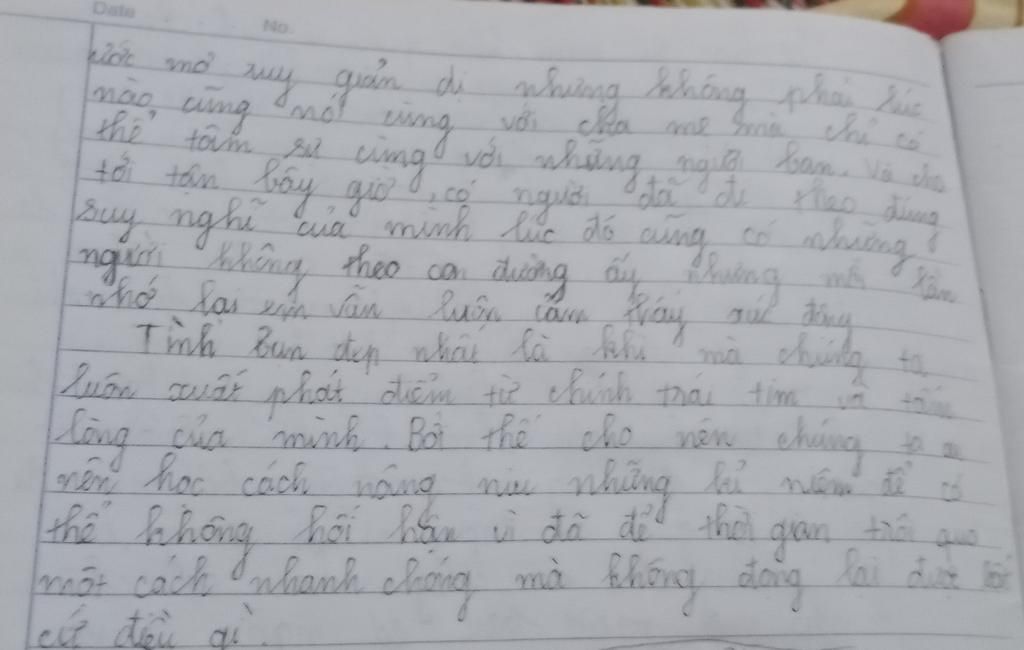 Date No.
ước mơ suy giản dị nhưng không phải lúc
nào cũng nói cùng với cha mẹ mà chỉ có
thể tâm sự cùng với những người bạn. Và cho
tới tận bây giờ, có người đã đi theo đúng
suy nghĩ của mình lúc đó cũng có những
người không theo con đường ấy nhưng mỗi lần
nhớ lại vẫn luôn cảm thấy xúc động
Tình Bạn đẹp nhất là khi mà chúng ta
luôn xuất phát điểm từ chính trái tim và tấm
lòng của mình. Bởi thế cho nên chúng ta
nên học cách nâng niu những kỉ niệm để có
thể không hối hận vì đã để thời gian trôi qua
một cách nhanh chóng mà không đọng lại được bất
cứ điều gì.